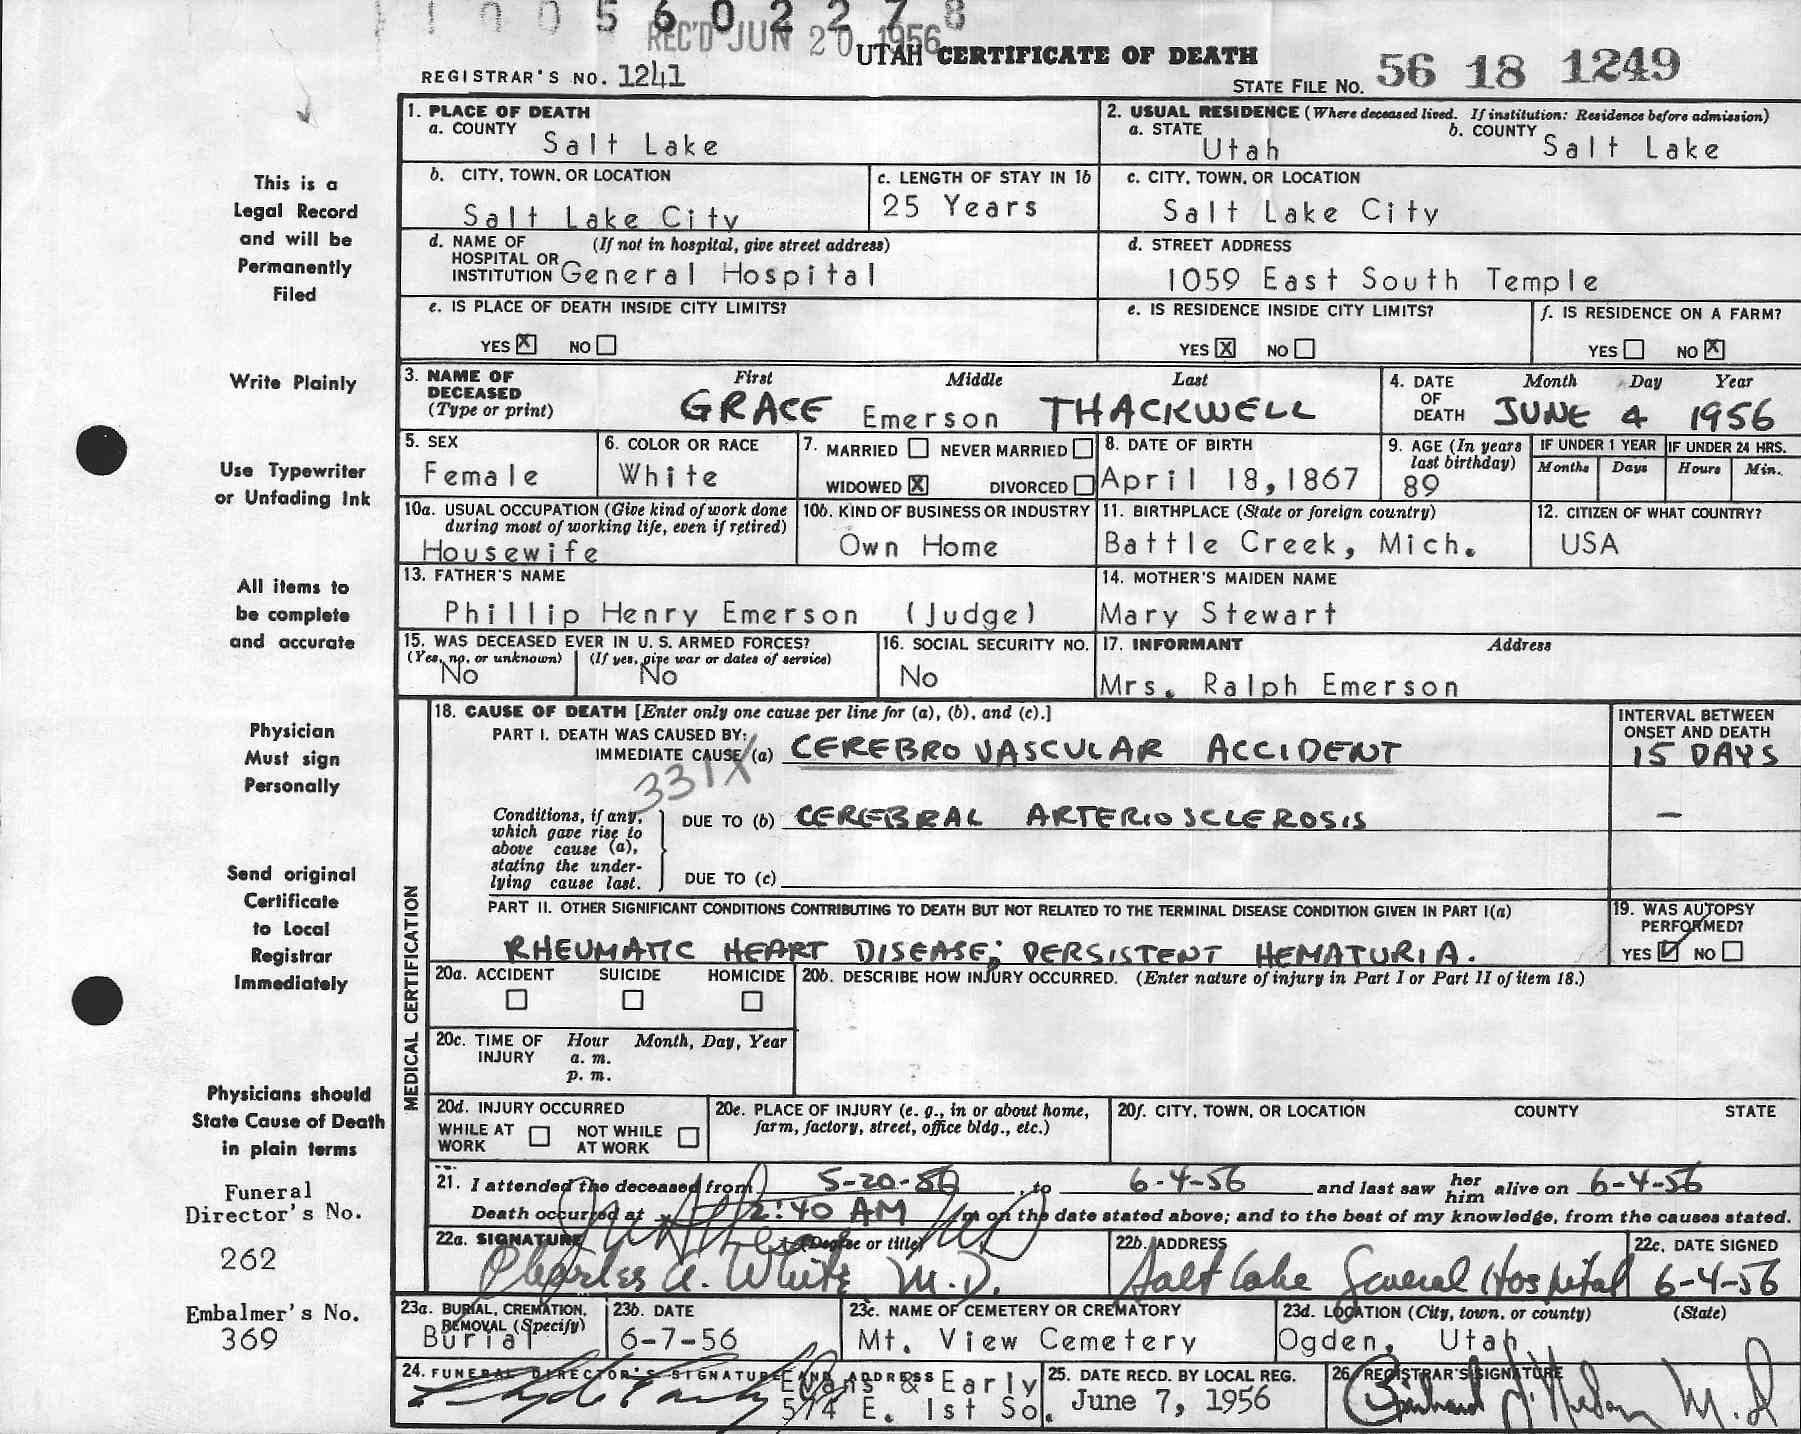 1 1 0 0 5 6 0 2 2 7 8
REC'D JUN 20 1956
UTAH CERTIFICATE OF DEATH
REGISTRAR'S NO. 1241
STATE FILE NO. 56 18 1249
This is a
Legal Record
and will be
Permanently
Filed
Write Plainly
Use Typewriter
or Unfading Ink
All items to
be complete
and accurate
Physician
Must sign
Personally
Send original
Certificate
to Local
Registrar
Immediately
Physicians should
State Cause of Death
in plain terms
Funeral
Director's No.
262
Embalmer's No.
369
1. PLACE OF DEATH
a. COUNTY Salt Lake
2. USUAL RESIDENCE (Where deceased lived. If institution: Residence before admission)
a. STATE Utah b. COUNTY Salt Lake
b. CITY, TOWN, OR LOCATION
Salt Lake City
c. LENGTH OF STAY IN 1b
25 Years
c. CITY, TOWN, OR LOCATION
Salt Lake City
d. NAME OF (If not in hospital, give street address)
HOSPITAL OR
INSTITUTION General Hospital
d. STREET ADDRESS
1059 East South Temple
e. IS PLACE OF DEATH INSIDE CITY LIMITS?
YES X NO
e. IS RESIDENCE INSIDE CITY LIMITS?
YES X NO
f. IS RESIDENCE ON A FARM?
YES NO X
3. NAME OF DECEASED (Type or print)
First Middle Last
GRACE Emerson THACKWELL
4. DATE OF DEATH
Month Day Year
JUNE 4 1956
5. SEX
Female
6. COLOR OR RACE
White
7. MARRIED NEVER MARRIED
WIDOWED X DIVORCED
8. DATE OF BIRTH
April 18, 1867
9. AGE (In years last birthday)
89
IF UNDER 1 YEAR
Months Days
IF UNDER 24 HRS.
Hours Min.
10a. USUAL OCCUPATION (Give kind of work done
during most of working life, even if retired)
Housewife
10b. KIND OF BUSINESS OR INDUSTRY
Own Home
11. BIRTHPLACE (State or foreign country)
Battle Creek, Mich.
12. CITIZEN OF WHAT COUNTRY?
USA
13. FATHER'S NAME
Phillip Henry Emerson (Judge)
14. MOTHER'S MAIDEN NAME
Mary Stewart
15. WAS DECEASED EVER IN U. S. ARMED FORCES?
(Yes, no, or unknown) (If yes, give war or dates of service)
No No
16. SOCIAL SECURITY NO.
No
17. INFORMANT Address
Mrs. Ralph Emerson
MEDICAL CERTIFICATION
18. CAUSE OF DEATH [Enter only one cause per line for (a), (b), and (c).]
PART I. DEATH WAS CAUSED BY:
IMMEDIATE CAUSE (a) CEREBRO VASCULAR ACCIDENT
331X
INTERVAL BETWEEN
ONSET AND DEATH
15 DAYS
Conditions, if any,
which gave rise to
above cause (a),
stating the under-
lying cause last.
DUE TO (b) CEREBRAL ARTERIOSCLEROSIS
—
DUE TO (c)
PART II. OTHER SIGNIFICANT CONDITIONS CONTRIBUTING TO DEATH BUT NOT RELATED TO THE TERMINAL DISEASE CONDITION GIVEN IN PART I(a)
RHEUMATIC HEART DISEASE; PERSISTENT HEMATURIA.
19. WAS AUTOPSY
PERFORMED?
YES ✓ NO
20a. ACCIDENT SUICIDE HOMICIDE
20b. DESCRIBE HOW INJURY OCCURRED. (Enter nature of injury in Part I or Part II of item 18.)
20c. TIME OF INJURY Hour Month, Day, Year
a. m.
p. m.
20d. INJURY OCCURRED
WHILE AT WORK NOT WHILE AT WORK
20e. PLACE OF INJURY (e. g., in or about home,
farm, factory, street, office bldg., etc.)
20f. CITY, TOWN, OR LOCATION COUNTY STATE
21. I attended the deceased from 5-20-56, to 6-4-56 and last saw her him alive on 6-4-56
Death occurred at 2:40 AM m on the date stated above; and to the best of my knowledge, from the causes stated.
22a. SIGNATURE (Degree or title)
Charles A. White M.D.
22b. ADDRESS
Salt Lake General Hospital
22c. DATE SIGNED
6-4-56
23a. BURIAL, CREMATION,
REMOVAL (Specify)
Burial
23b. DATE
6-7-56
23c. NAME OF CEMETERY OR CREMATORY
Mt. View Cemetery
23d. LOCATION (City, town, or county) (State)
Ogden, Utah
24. FUNERAL DIRECTOR'S SIGNATURE AND ADDRESS
Evans & Early
574 E. 1st So.
25. DATE RECD. BY LOCAL REG.
June 7, 1956
26. REGISTRAR'S SIGNATURE
M.D.